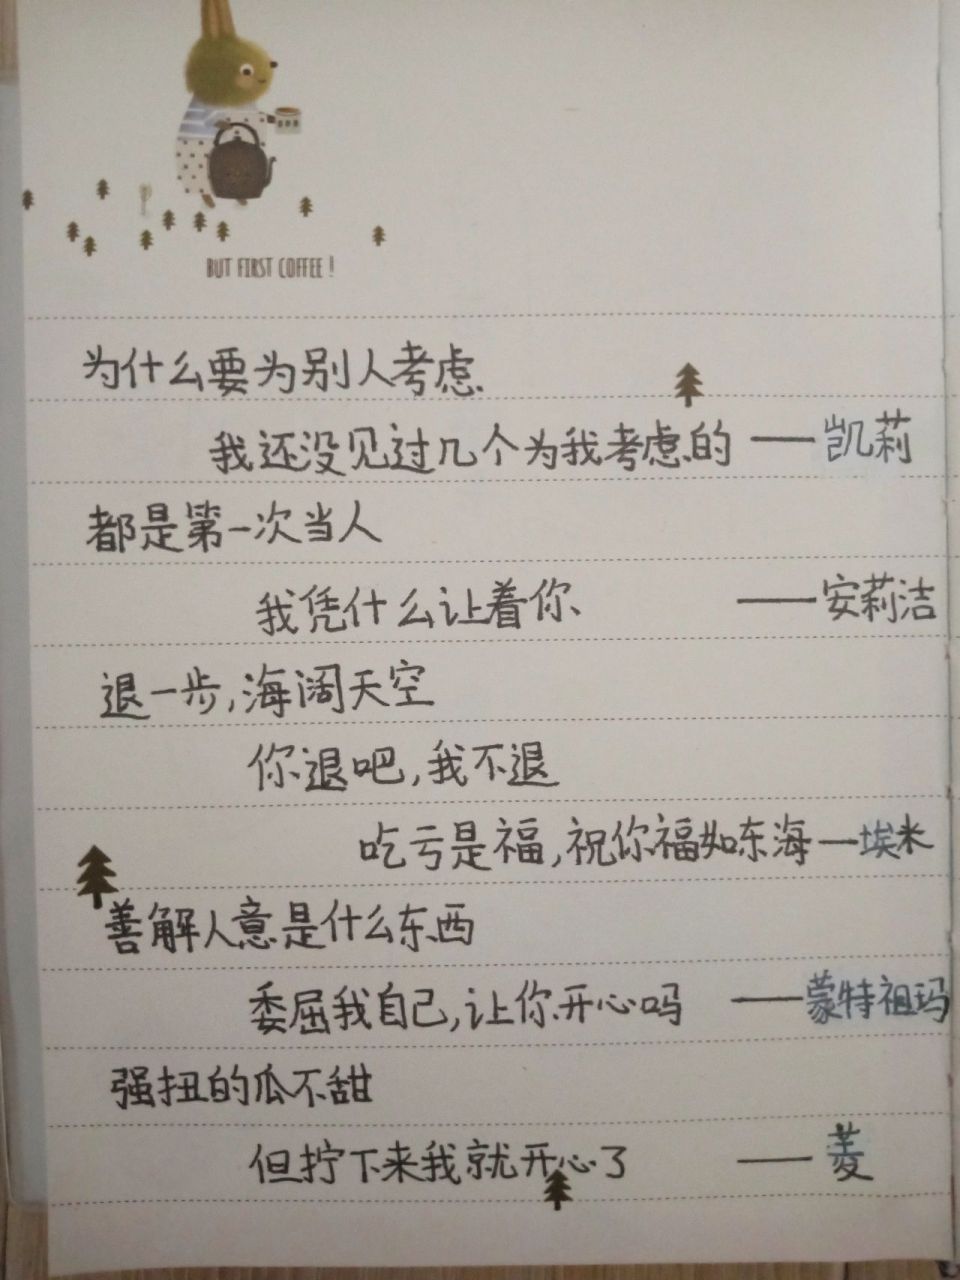 BUT FIRST COFFEE!
为什么要为别人考虑
我还没见过几个为我考虑的——凯莉
都是第一次当人
我凭什么让着你 ——安莉洁
退一步,海阔天空
你退吧,我不退
吃亏是福,祝你福如东海—埃米
善解人意是什么东西
委屈我自己,让你开心吗 ——蒙特祖玛
强扭的瓜不甜
但拧下来我就开心了 ——菱